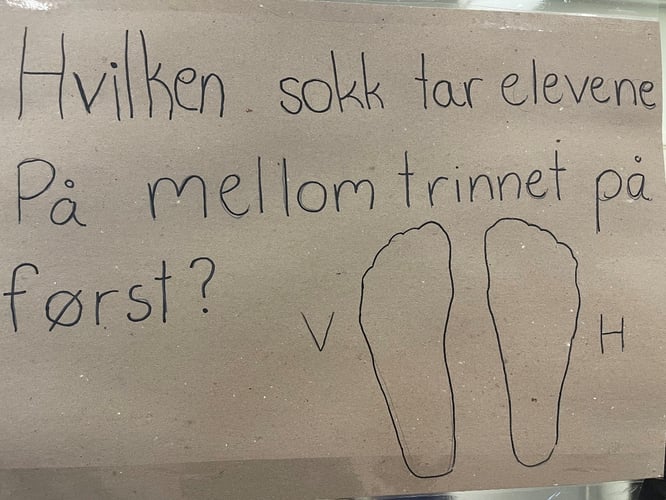 Hvilken sokk tar elevene
På mellomtrinnet på
først?
V H